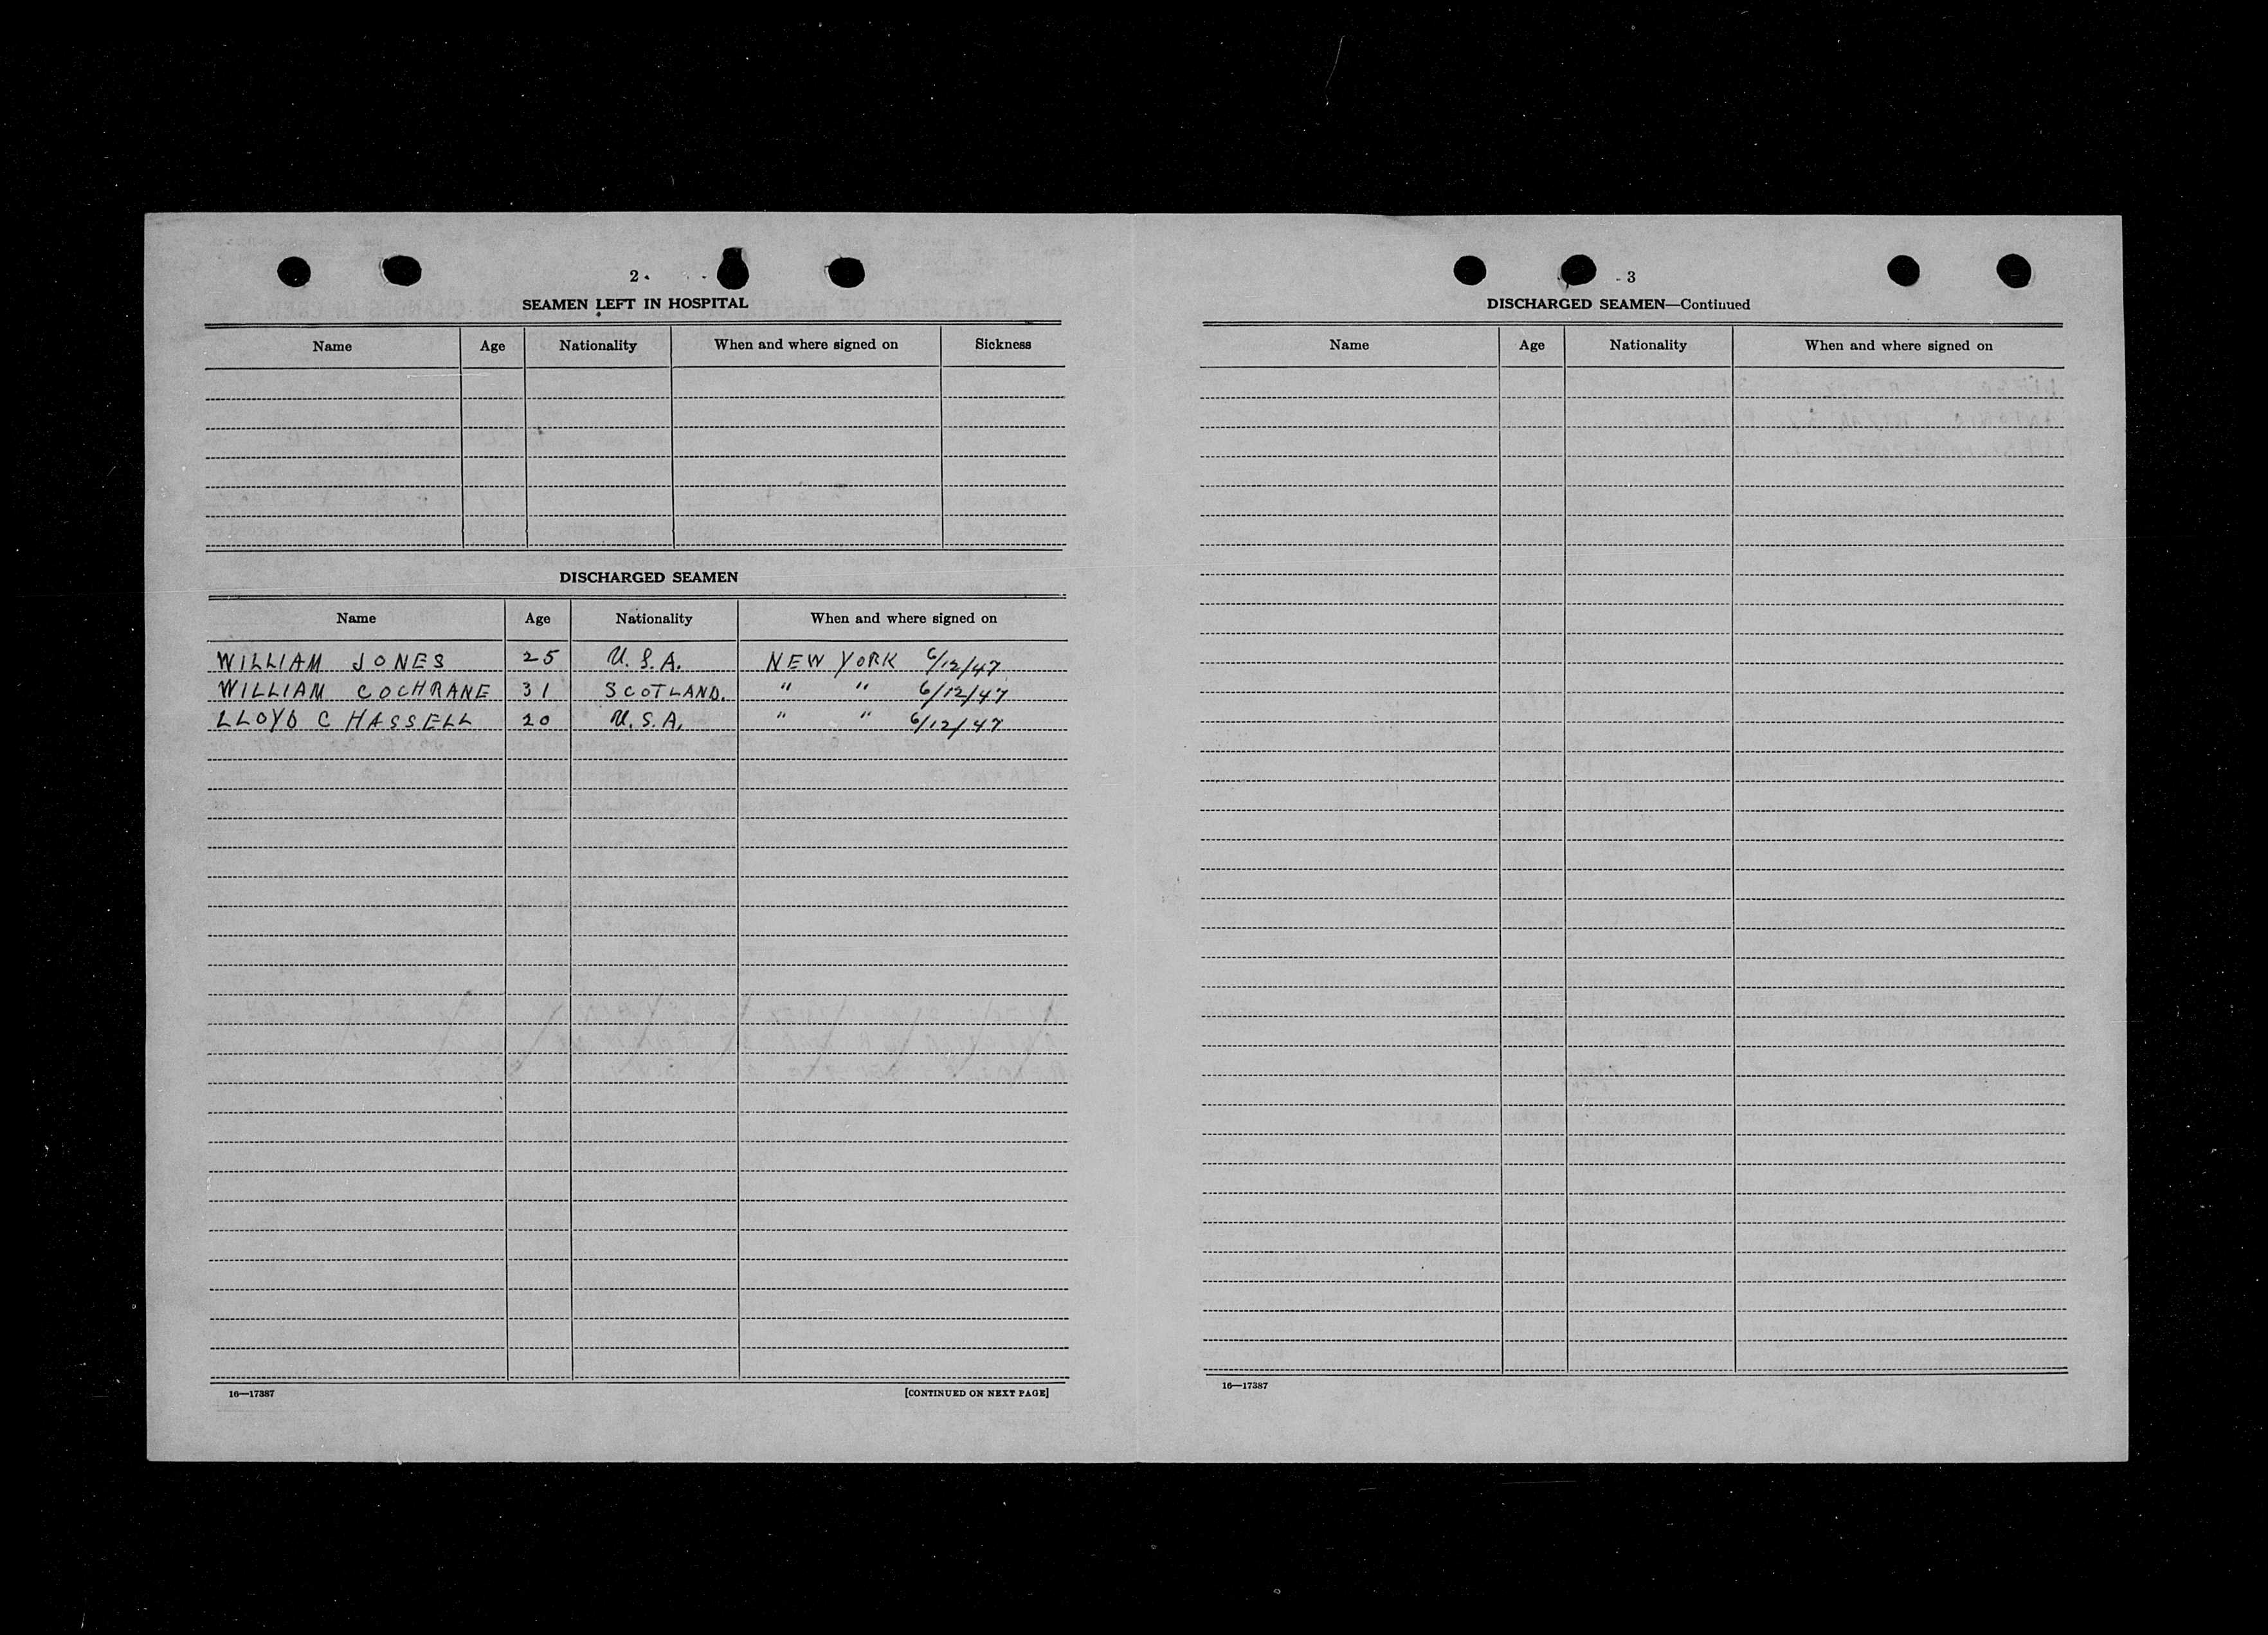 2
SEAMEN LEFT IN HOSPITAL
Name Age Nationality When and where signed on Sickness
DISCHARGED SEAMEN
Name Age Nationality When and where signed on
WILLIAM JONES 25 U.S.A. NEW YORK 6/12/47
WILLIAM COCHRANE 31 SCOTLAND. " " 6/12/47
LLOYD C HASSELL 20 U.S.A. " " 6/12/47
16—17387 [CONTINUED ON NEXT PAGE]
3
DISCHARGED SEAMEN—Continued
Name Age Nationality When and where signed on
16—17387